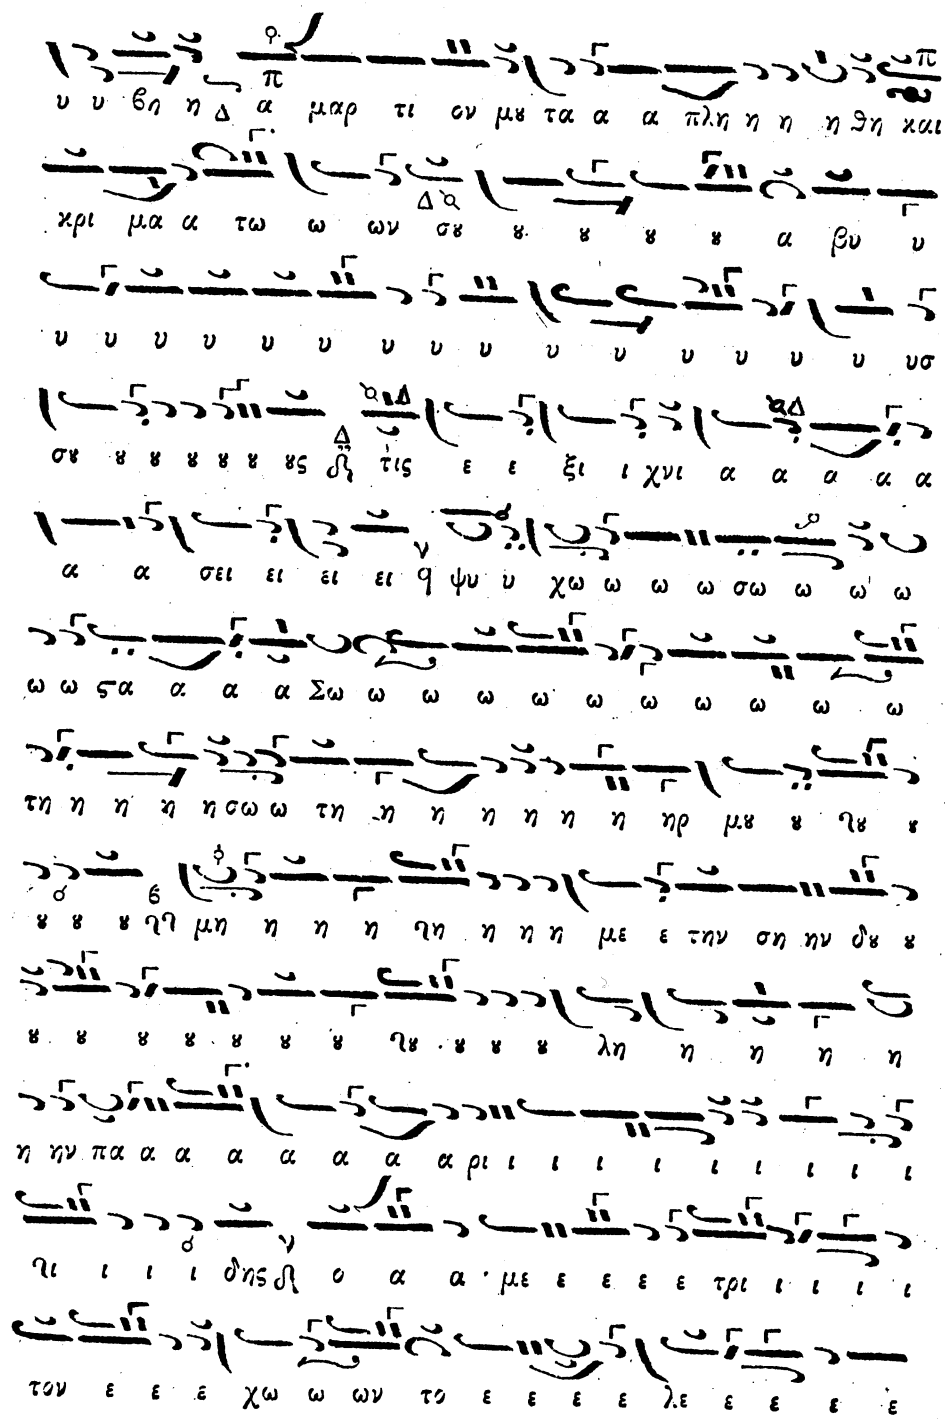 υ υ βη η Δ α μαρ τι ον μȣ τα α α πλη η η η θη και
κρι μα α τω ω ων σȣ ȣ ȣ ȣ ȣ α βυ υ
υ υ υ υ υ υ υ υ υ υ υ υ υ υ υ υσ
σȣ ȣ ȣ ȣ ȣ ȣ ȣς τις ε ε ξι ι χνι α α α α α
α α σει ει ει ει ψυ υ χω ω ω ω σω ω ω ω
ω ω ϛα α α α Σω ω ω ω ω ω ω ω ω ω
τη η η η η σω ω τη η η η η η η ηρ μȣ ȣ ȣ ȣ
ȣ ȣ ȣ μη η η η η η η η με ε την ση ην δȣ ȣ
ȣ ȣ ȣ ȣ ȣ ȣ ȣ ȣ ȣ ȣ ȣ λη η η η η
η ην πα α α α α α α α ρι ι ι ι ι ι ι ι ι
ι ι ι ι δης ο α α με ε ε ε ε τρι ι ι ι ι
τον ε ε ε χω ω ων το ε ε ε ε λε ε ε ε ε